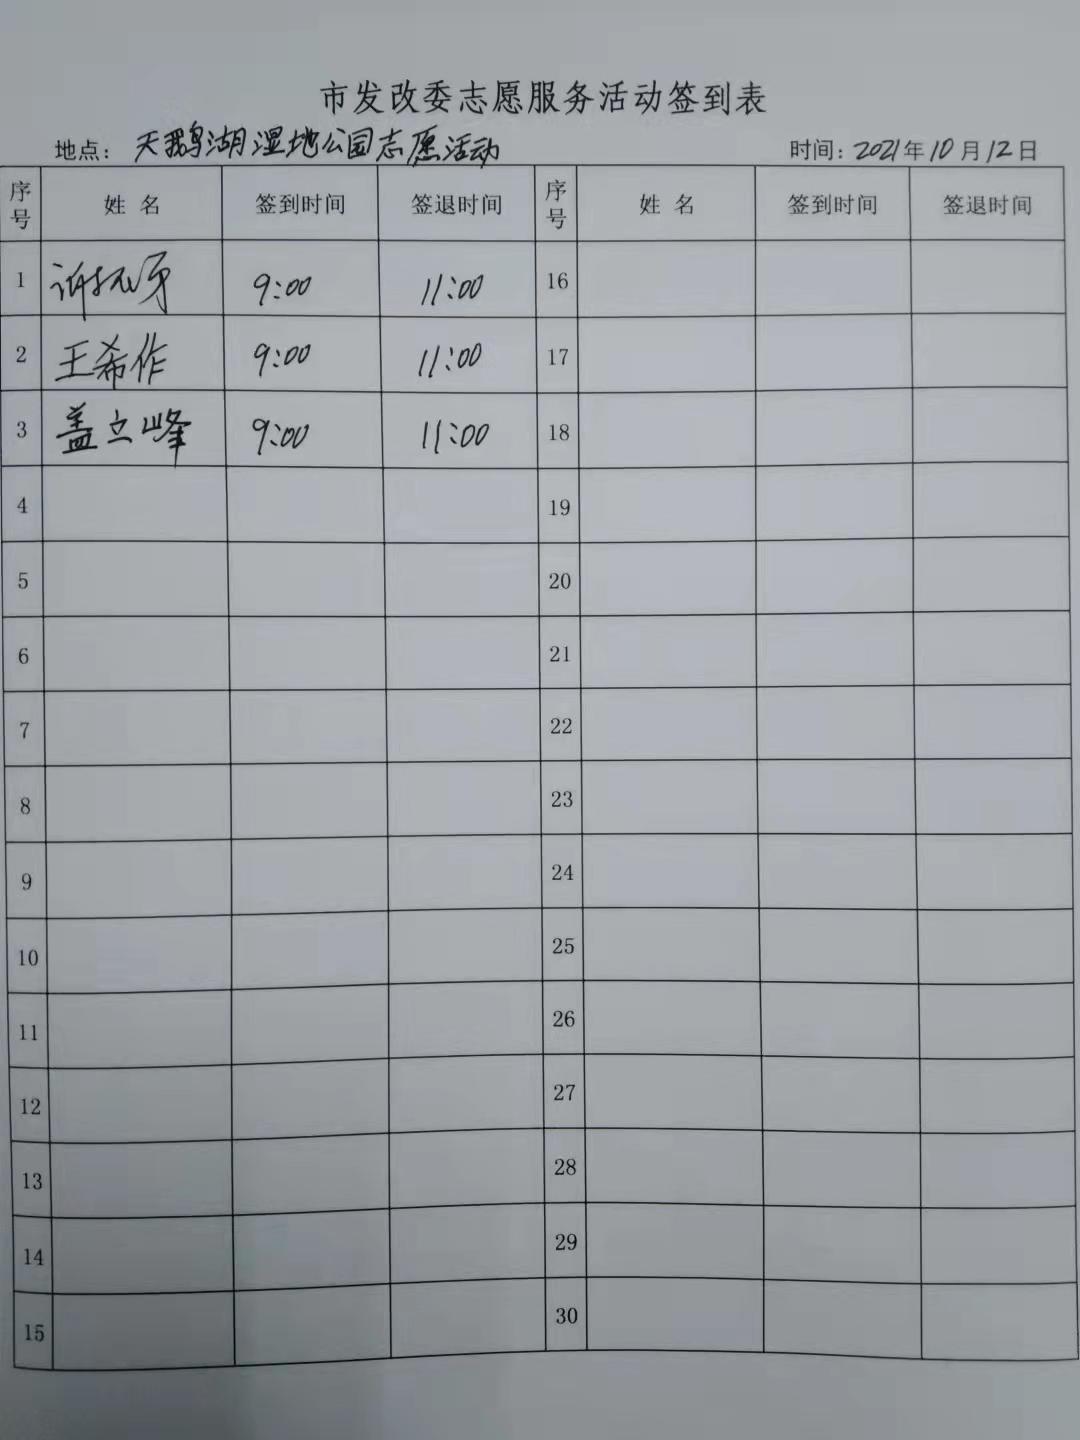 市发改委志愿服务活动签到表
地点：天鹅湖湿地公园志愿活动 时间：2021年10月12日
序号 姓名 签到时间 签退时间 序号 姓名 签到时间 签退时间
1 许 9:00 11:00 16
2 王希作 9:00 11:00 17
3 盖立峰 9:00 11:00 18
4 19
5 20
6 21
7 22
8 23
9 24
10 25
11 26
12 27
13 28
14 29
15 30